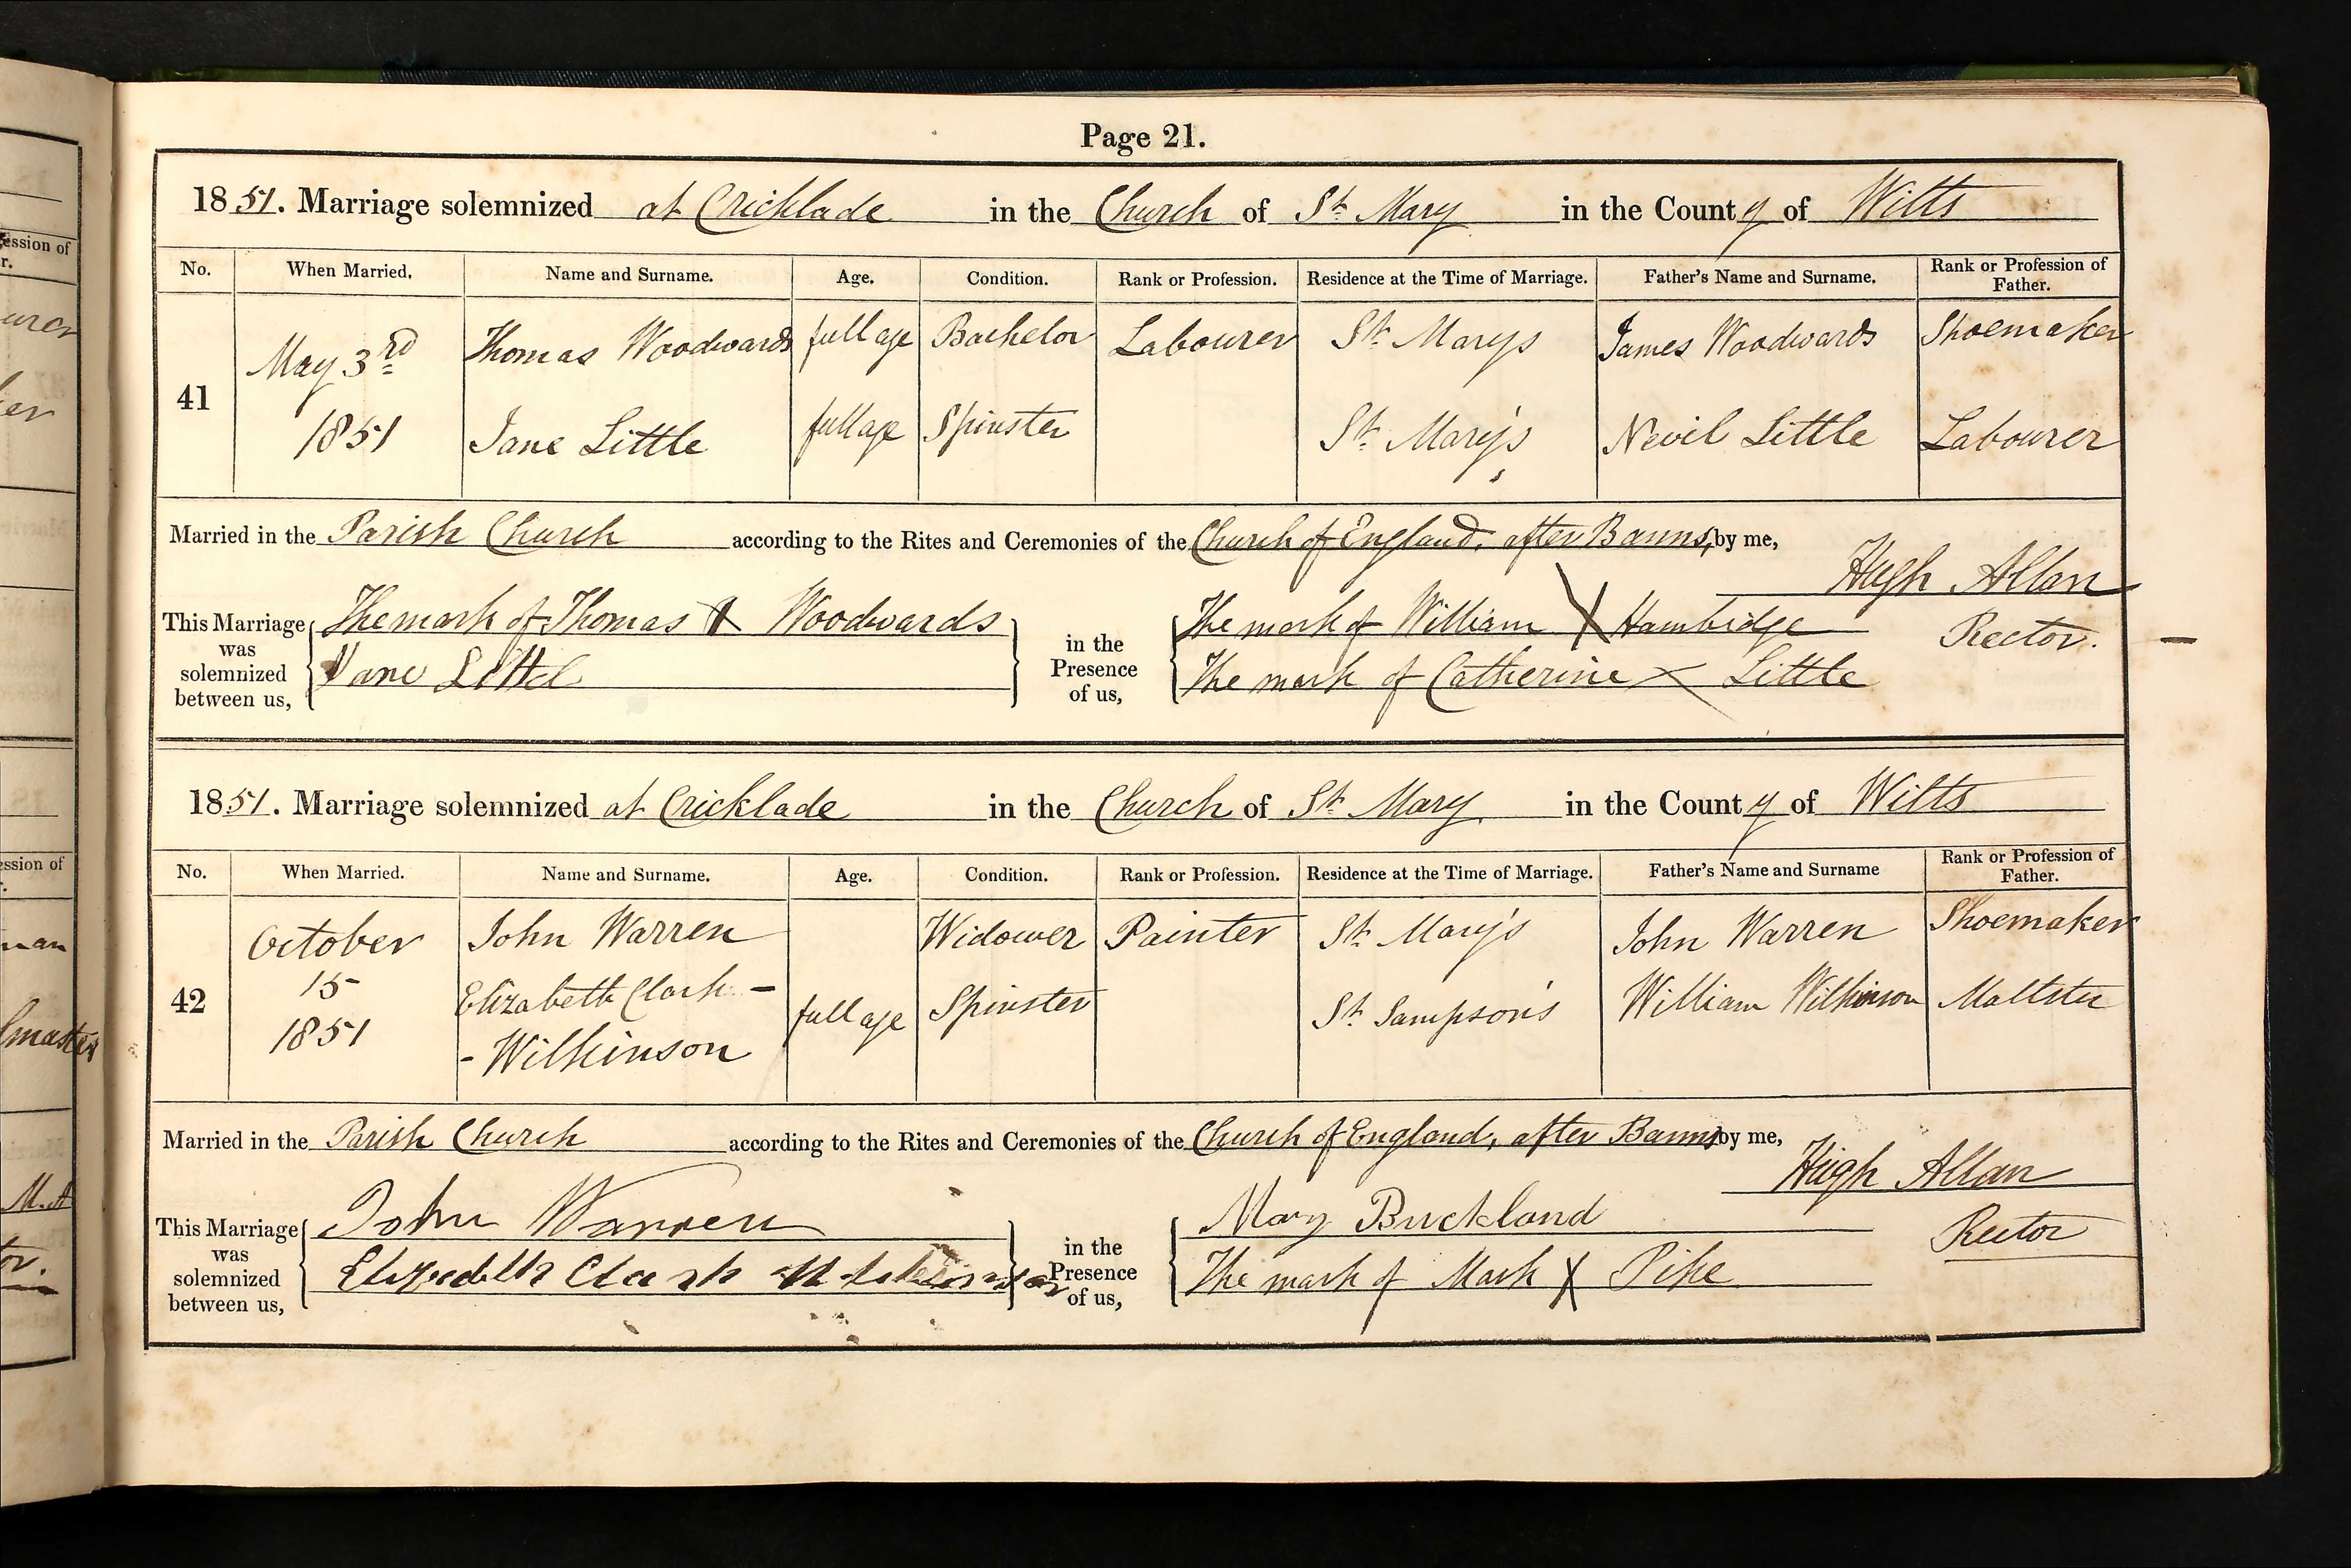 Page 21.
1851. Marriage solemnized at Cricklade in the Church of St. Mary in the County of Wilts
No. When Married. Name and Surname. Age. Condition. Rank or Profession. Residence at the Time of Marriage. Father's Name and Surname. Rank or Profession of Father.
41 May 3rd 1851 Thomas Woodwards full age Bachelor Labourer St. Marys James Woodwards Shoemaker
Jane Little full age Spinster St. Mary's Nevil Little Labourer
Married in the Parish Church according to the Rites and Ceremonies of the Church of England, after Banns, by me,
Hugh Allan
Rector.
This Marriage was solemnized between us, The mark of Thomas X Woodwards
Jane Littel
in the Presence of us, The mark of William X Hambidge
The mark of Catherine X Little
1851. Marriage solemnized at Cricklade in the Church of St. Mary in the County of Wilts
No. When Married. Name and Surname. Age. Condition. Rank or Profession. Residence at the Time of Marriage. Father's Name and Surname Rank or Profession of Father.
42 October 15 1851 John Warren Widower Painter St. Mary's John Warren Shoemaker
Elizabeth Clark - - Wilkinson full age Spinster St. Sampson's William Wilkinson Maltster
Married in the Parish Church according to the Rites and Ceremonies of the Church of England, after Banns by me,
Hugh Allan
Rector
This Marriage was solemnized between us, John Warren
Elizabeth Clark Wilkinson
in the Presence of us, Mary Buckland
The mark of Mark X Pike
ession of
r.
urer
er
ession of
man
lmaster
M.A
tor.